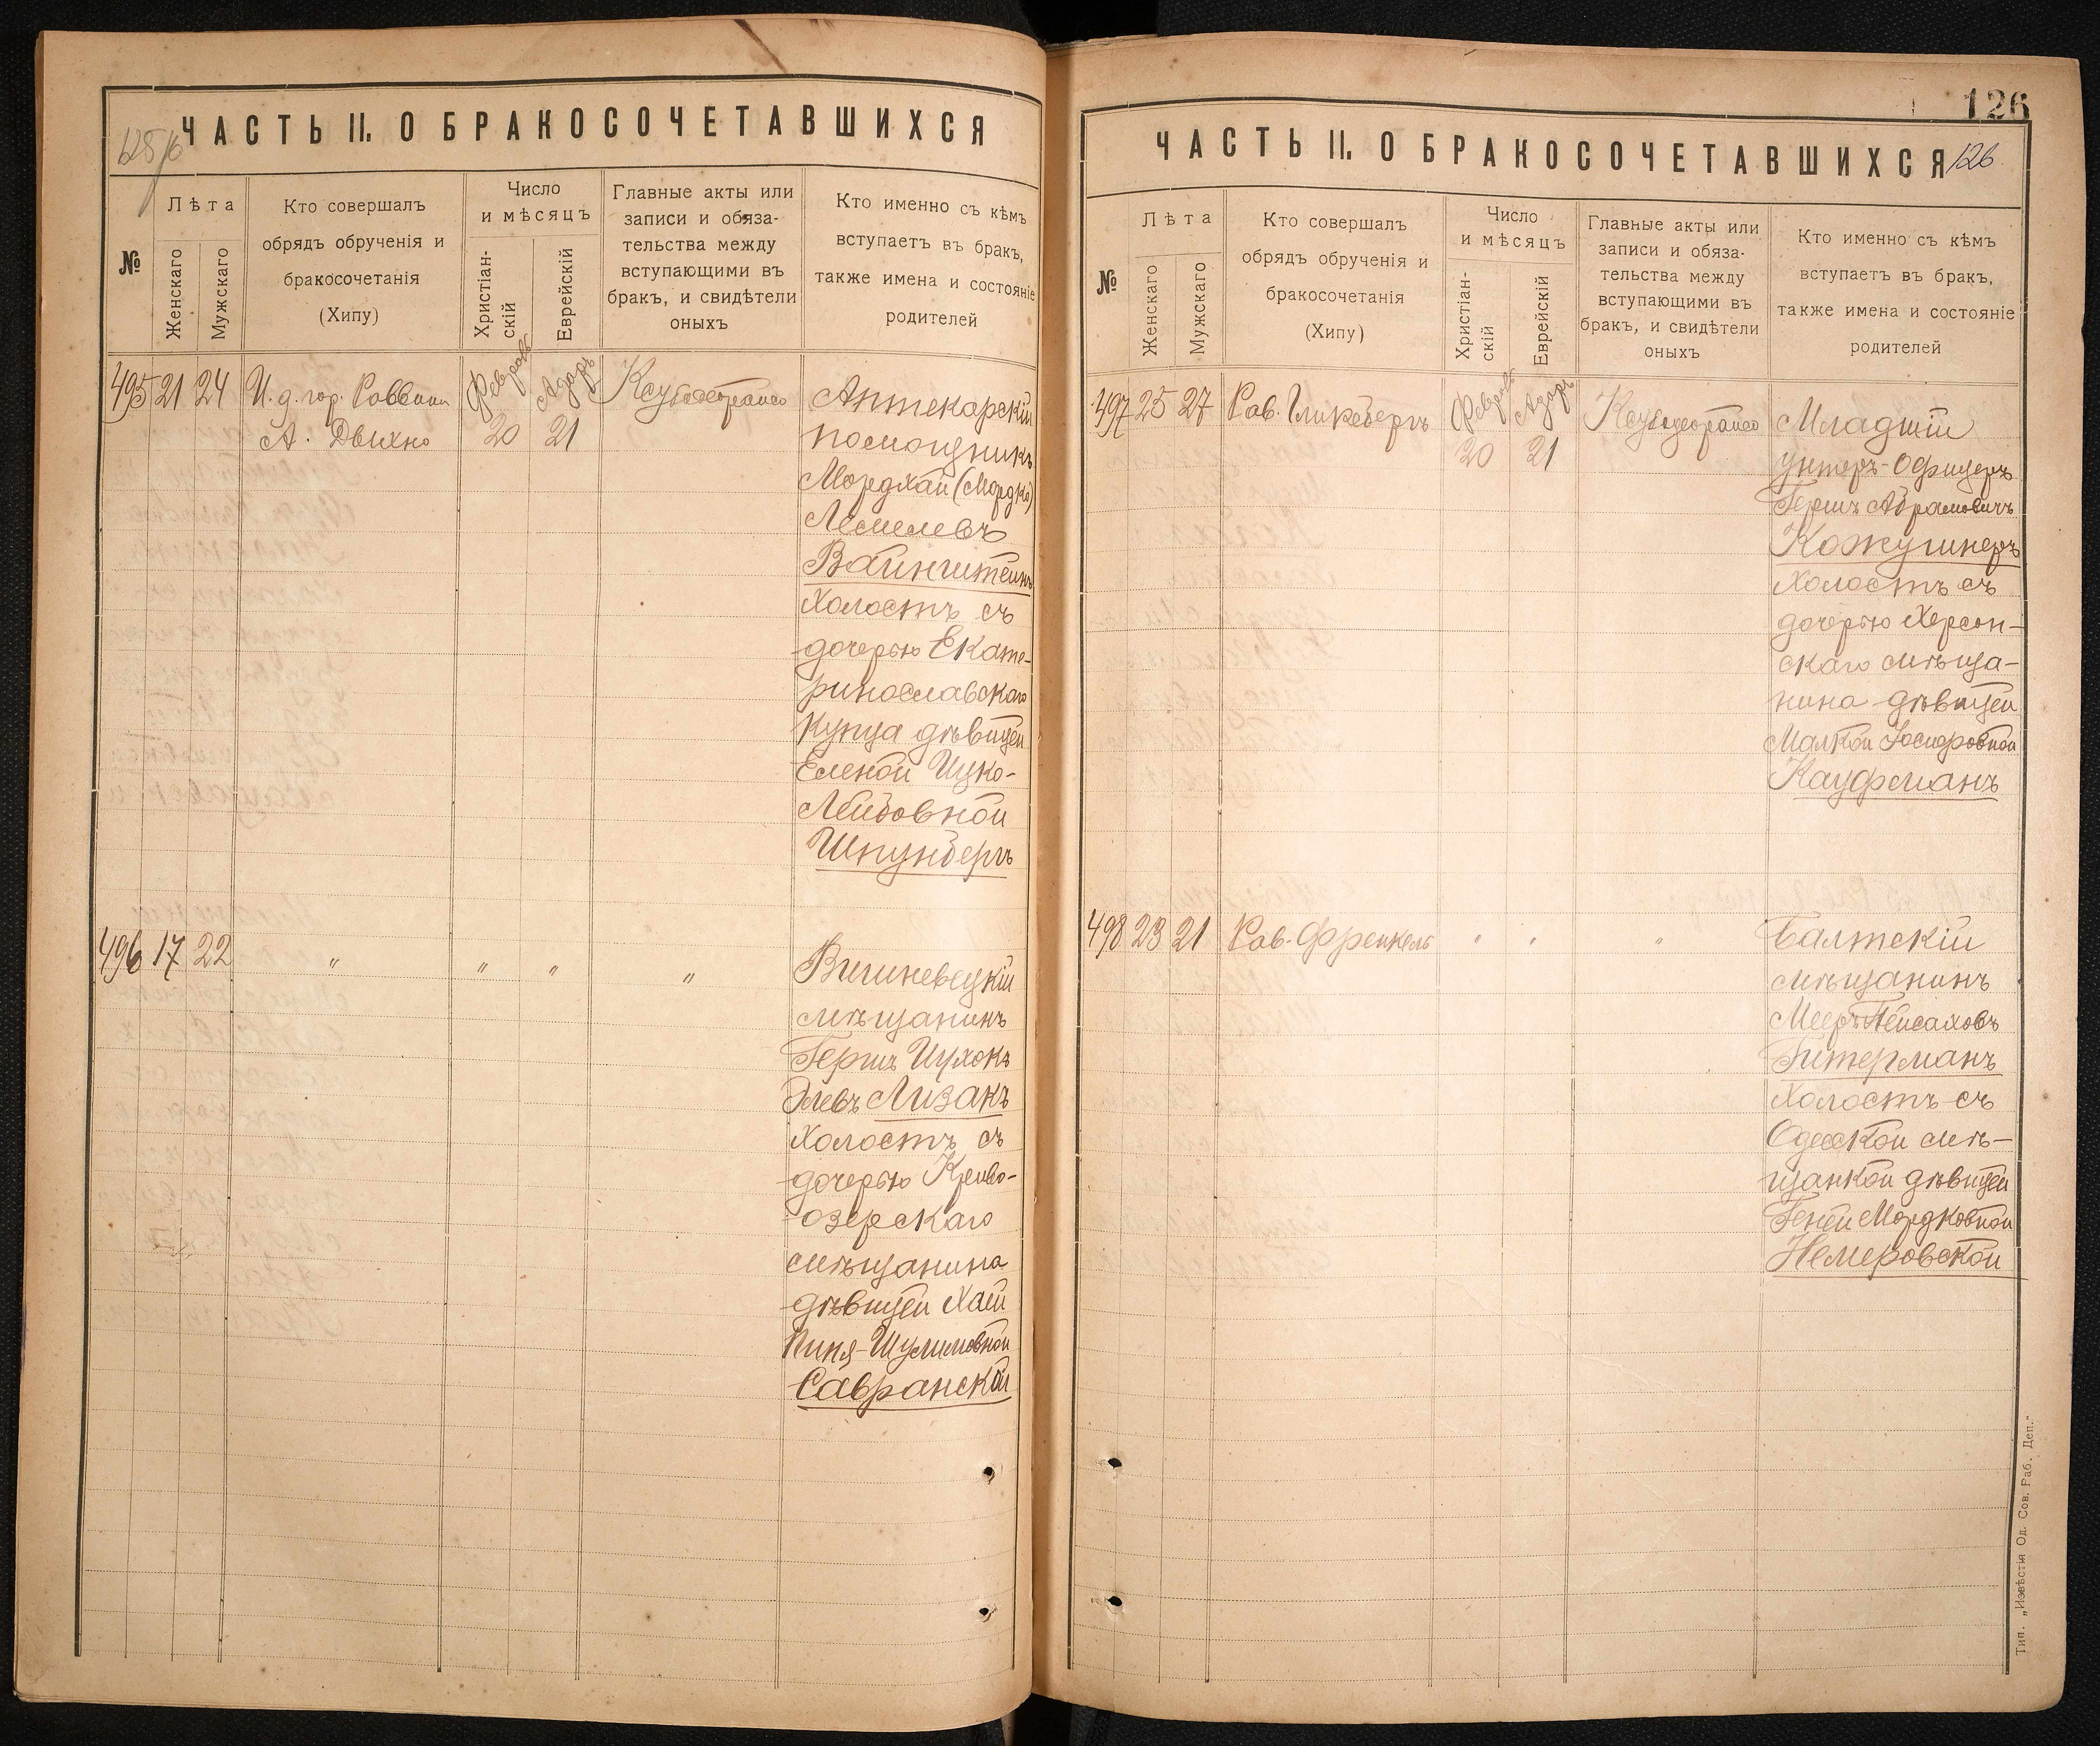 125 об
ЧАСТЬ II. О БРАКОСОЧЕТАВШИХСЯ
№
Лѣта
Женскаго
Мужскаго
Кто совершалъ
обрядъ обрученія и
бракосочетанія
(Хипу)
Число
и мѣсяцъ
Христіан-
скій
Еврейскій
Главные акты или
записи и обяза-
тельства между
вступающими въ
бракъ, и свидѣтели
оныхъ
Кто именно съ кѣмъ
вступаетъ въ бракъ,
также имена и состояніе
родителей
495 21 24
И. д. гор. Раввина
А. Двихно
Февраль
20
Адаръ
21
Аптекарскій
помощникъ
Мордхай (Мордко)
Лемелевъ
Вайнштейнъ
Холостъ съ
дочерью Екате-
ринославскаго
купца дѣвицей
Еленой Ицко-
Лейбовной
Шпунбергъ
496 17 22
" " " "
Вишневецкій
мѣщанинъ
Гершъ Ицхокъ
Элевъ Лизакъ
Холостъ съ
дочерью Криво-
озерскаго
мѣщанина
дѣвицей Хаей
Пиня-Шулимовной
Савранской
126
ЧАСТЬ II. О БРАКОСОЧЕТАВШИХСЯ
126
№
Лѣта
Женскаго
Мужскаго
Кто совершалъ
обрядъ обрученія и
бракосочетанія
(Хипу)
Число
и мѣсяцъ
Христіан-
скій
Еврейскій
Главные акты или
записи и обяза-
тельства между
вступающими въ
бракъ, и свидѣтели
оныхъ
Кто именно съ кѣмъ
вступаетъ въ бракъ,
также имена и состояніе
родителей
497 25 27
Рав. Гликсбергъ
Февраль
20
Адаръ
21
Младшій
унтеръ-Офицеръ
Гершъ Абрамовичъ
Кожушнеръ
Холостъ съ
дочерью Херсон-
скаго мѣща-
нина дѣвицей
Малкой Іосифовной
Кауфманъ
498 23 21
Рав. Френкель
" " "
Балтскій
мѣщанинъ
Мееръ Пейсаховъ
Гитерманъ
Холостъ съ
Одесской мѣ-
щанкой дѣвицей
Геней Мордковной
Немеровской
Тип. „Извѣстія Од. Сов. Раб. Деп."